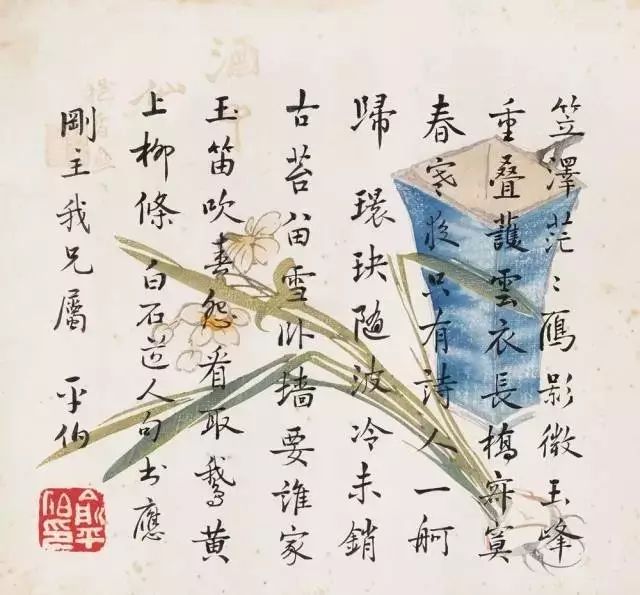 笠澤茫〻鴈影微玉峰
重叠護雲衣長橋寂寞
春寒夜只有詩人一舸
歸 環玦隨波冷未銷
古苔留雪卧墙要誰家
玉笛吹春怨看取鵝黄
上柳條 白石道人句书應
剛主我兄屬 平伯
俞平伯印
酒中仙